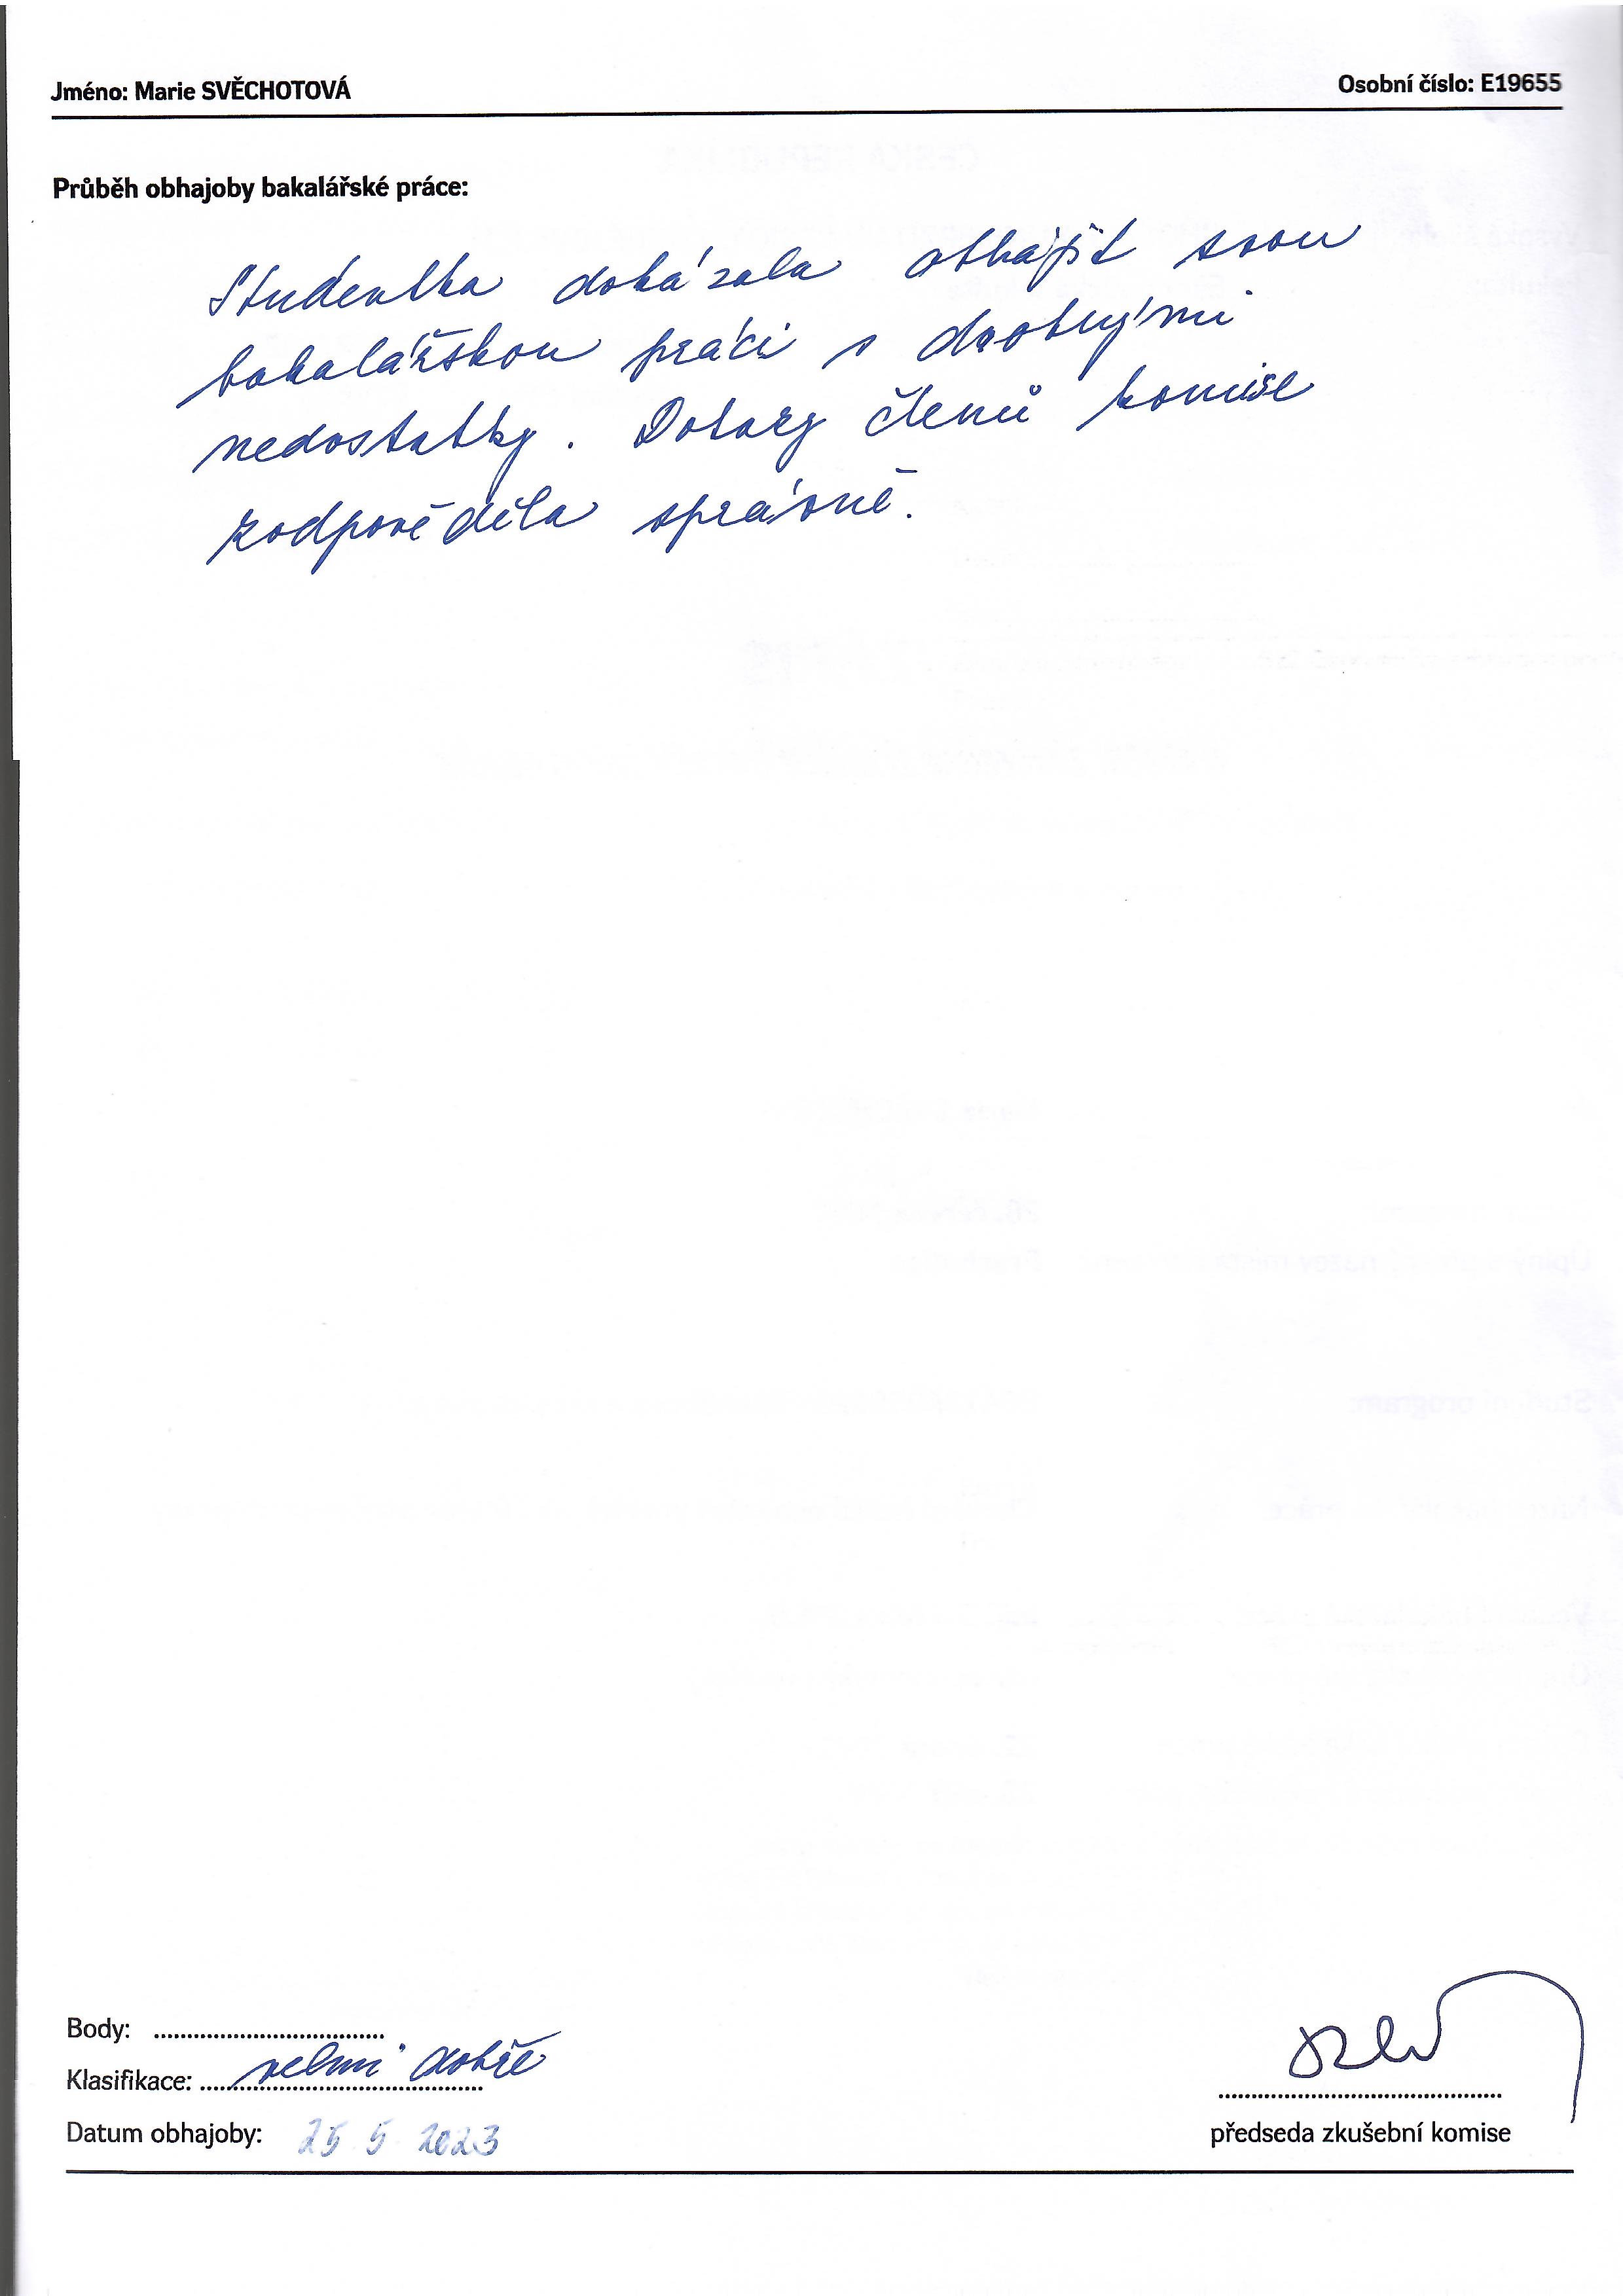 Jméno: Marie SVĚCHOTOVÁ Osobní číslo: E19655
Průběh obhajoby bakalářské práce:
Studentka dokázala obhájit svou
bakalářskou práci s drobnými
nedostatky. Dotazy členů komise
zodpověděla správně.
Body: ...................................
Klasifikace: velmi dobře
Datum obhajoby: 25 5 2023
předseda zkušební komise